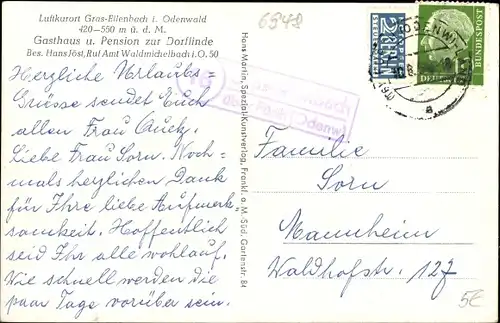 Luftkurort Gras-Ellenbach i. Odenwald
420-550 m ü. d. M.
Gasthaus u. Pension zur Dorflinde
Bes. Hans Jöst, Ruf Amt Waldmichelbach i. O. 50
Herzliche Urlaubs-
Grüsse sendet Euch
allen Frau Auck.
Liebe Frau Sorn. Noch-
mals herzlichen Dank
für Ihre liebe Aufmerk-
samkeit. Hoffentlich
seid Ihr alle wohlauf.
Wie schnell werden die
paar Tage vorüber sein.
Hans Martin, Spezial-Kunstverlag, Frankf. a. M. Süd, Gartenstr. 84
6948
(16)
über Fürth (Odenw)
2
BERLIN
NOTOPFER
STEUERMARKE
DEUTSCHE
BUNDESPOST
a
Familie
Sorn
Mannheim
Waldhofstr. 127
5€